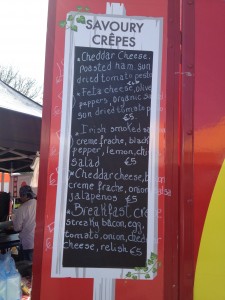 SAVOURY
CRÊPES
Cheddar Cheese,
roasted ham, sun
dried tomato pesto
Feta cheese, olive
peppers, organic
sun dried tomato
Irish smoked
creme frache, black
pepper, lemon,
salad €5
Cheddarcheese,
creme frache, onion
jalapenos €5
Breakfast
streaky bacon, egg,
tomato, onion,
cheese, relish €5